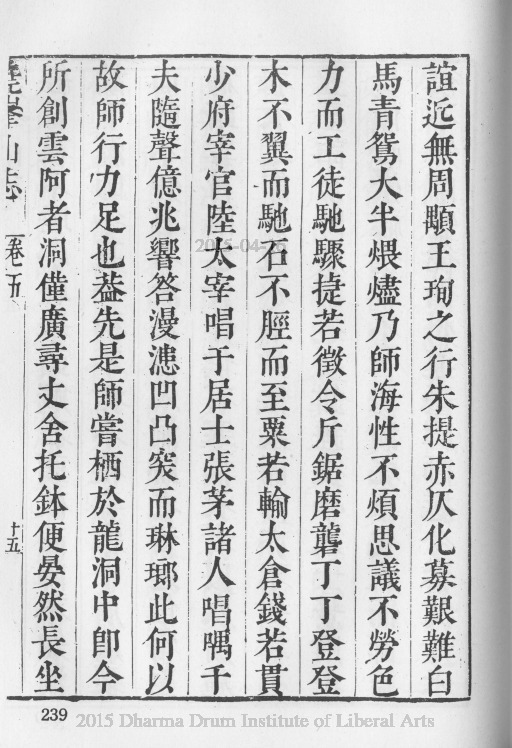 誼近無周顒王珣之行朱提赤仄化募艱難白
馬青鴛大半煨燼乃師海性不煩思議不勞色
力而工徒馳驟捷若徵令斤鋸磨礱丁丁登登
木不翼而馳石不脛而至粟若輸太倉錢若貫
少府宰官陸太宰唱于居士張茅諸人唱喁千
夫隨聲億兆響答漫漶凹凸突而琳瑯此何以
故師行力足也葢先是師嘗栖於龍洞中卽今
所創雲阿者洞僅廣尋丈舍托鉢便晏然長坐
堯峯山志 卷五 十五
239
2015 Dharma Drum Institute of Liberal Arts